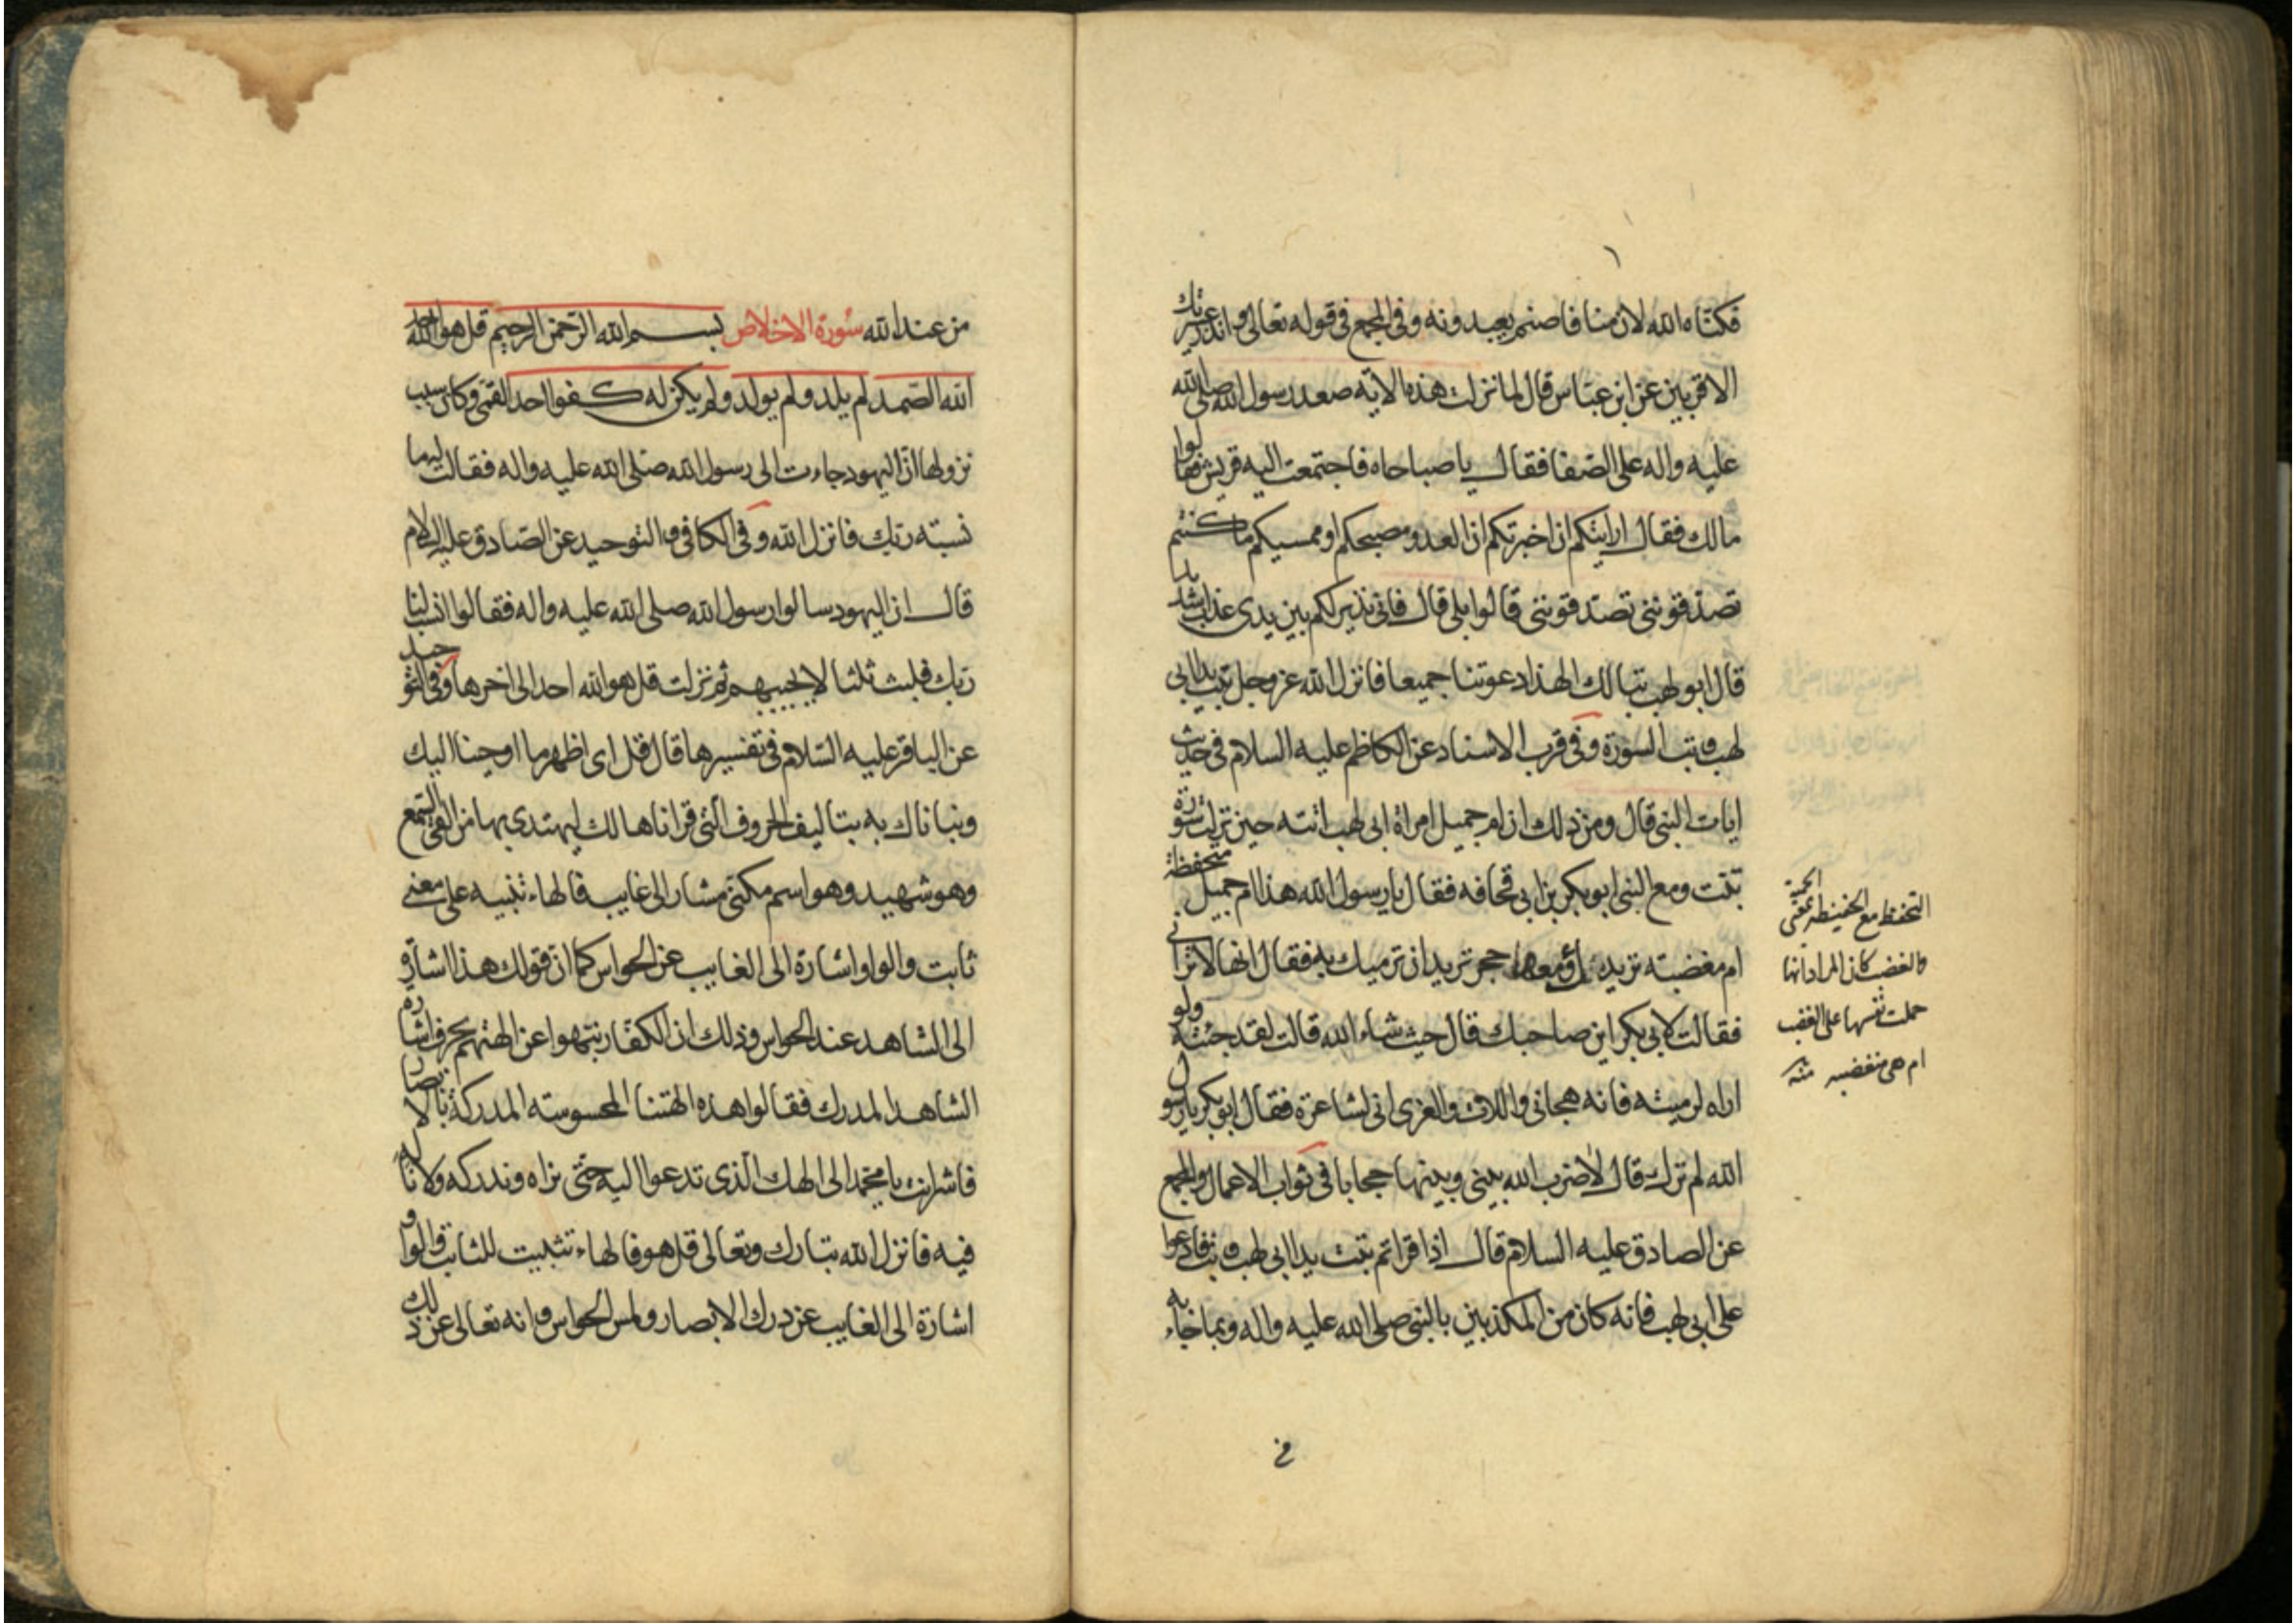 فكتاه الله لان منا فاصنم يعبدونه وفي المجمع في قوله تعالى وانذر عشيرتك
الاقربين عن ابن عباس قال لما نزلت هذه الاية صعد رسول الله صلى الله
عليه واله على الصفا فقال يا صباحاه فاجتمعت اليه قريش فقالوا
مالك فقال ارايتكم ان اخبرتكم ان العدو مصبحكم او ممسيكم ما كنتم
تصدقونني تصدقونني قالوا بلى قال فاني نذير لكم بين يدي عذاب شديد
قال ابو لهب تبا لك الهذا دعوتنا جميعا فانزل الله عز وجل تبت يدا ابي
لهب وتب السورة وفي قرب الاسناد عن الكاظم عليه السلام في حديث
ايات النبي قال ومن ذلك ان ام جميل امراة ابي لهب اتته حين نزلت سورة
تبت ومع النبي ابو بكر بن ابي قحافه فقال يا رسول الله هذا ام جميل متحفظة
ام مغضبته تريدك ومعها حجر تريد ان ترميك به فقال انها لا تراني
فقالت لابي بكر اين صاحبك قال حيث شاء الله قالت لقد جئته ولو
اراه لرميته فانه هجاني واللات والعزى اني لشاعرة فقال ابو بكر يا رسول
الله لم ترك قال لا ضرب الله بيني وبينها حجابا في ثواب الاعمال والمجمع
عن الصادق عليه السلام قال اذا قراتم تبت يدا ابي لهب وتب فادعوا
على ابي لهب فانه كان من المكذبين بالنبي صلى الله عليه واله وبما جاء به
التحفظ مع الحفيظة بمعنى الحمية
والغضب كان المراد انها
حملت نفسها على الغضب
ام هي مغضبه منه
من عند الله سورة الاخلاص بسم الله الرحمن الرحيم قل هو الله احد
الله الصمد لم يلد ولم يولد ولم يكن له كفوا احد القمي وكان سبب
نزولها ان اليهود جاءت الى رسول الله صلى الله عليه واله فقالت له ما
نسبته ربك فانزل الله وفي الكافي والتوحيد عن الصادق عليه السلام
قال ان اليهود سالوا رسول الله صلى الله عليه واله فقالوا انسب لنا
ربك فلبث ثلثا لا يجيبهم ثم نزلت قل هو الله احد الى اخرها وفي التوحيد
عن الباقر عليه السلام في تفسيرها قال قل اي اظهر ما اوحينا اليك
ونبأناك به بتاليف الحروف التي قراناها لك ليهتدي بها من القى السمع
وهو شهيد وهو اسم مكنى مشار الى غايب فالهاء تنبيه على معنى
ثابت والواو اشارة الى الغايب عن الحواس كما ان قولك هذا اشارة
الى الشاهد عند الحواس وذلك ان الكفار نبهوا عن الهتهم بحرف اشارة
الشاهد المدرك فقالوا هذه الهتنا المحسوسته المدركة بالابصار
فاشر انت يا محمد الى الهك الذي تدعوا اليه حتى نراه وندركه ولا ناله
فيه فانزل الله تبارك وتعالى قل هو فالهاء تثبيت للثابت والواو
اشارة الى الغايب عن درك الابصار ولمس الحواس وانه تعالى عن ذلك